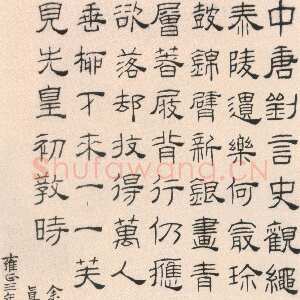 中唐劉言史觀繩
泰陵遺樂何冣珎
鼓錦臂新銀畫青
層著屐背行仍應
欲落却收得萬人
垂柳下來一一芙
見先皇初教時
雍正三年
Shufawang.CN